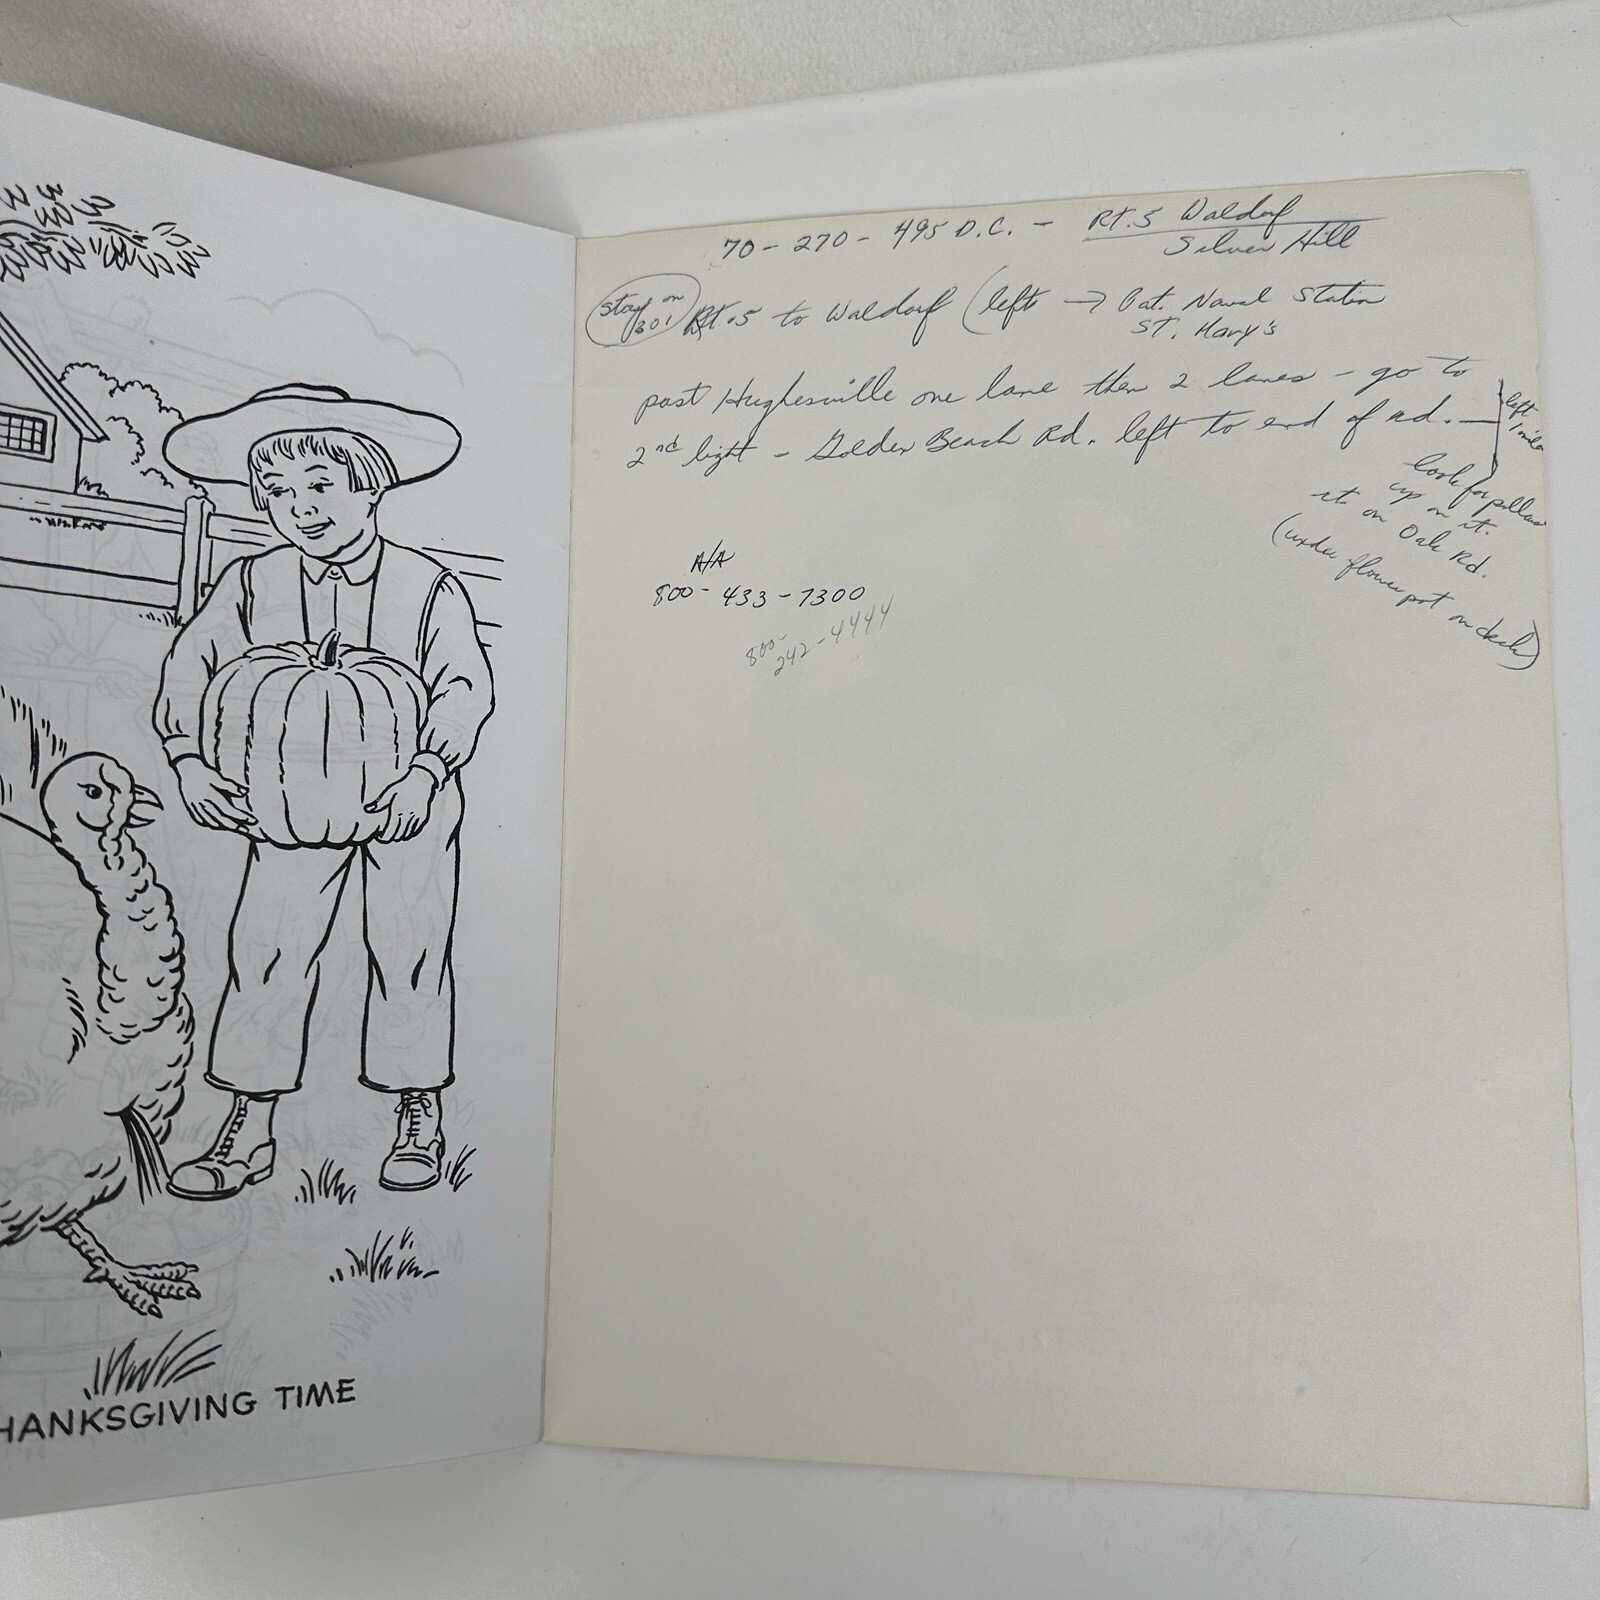 HANKSGIVING TIME
70 - 270 - 495 D.C. - Rt. 5 Waldorf
Silver Hill
Stay on
301
Rt. 5 to Waldorf (left → Pat. Naval Station
St. Mary's
past Hughesville one lane then 2 lanes - go to
2nd light - Golden Beach Rd. left to end of rd. —
left
1 mile
look for pillars
up on it.
its on Oak Rd.
(under flower pot on deck)
A/A
800 - 433 - 7300
800-
242 - 4444